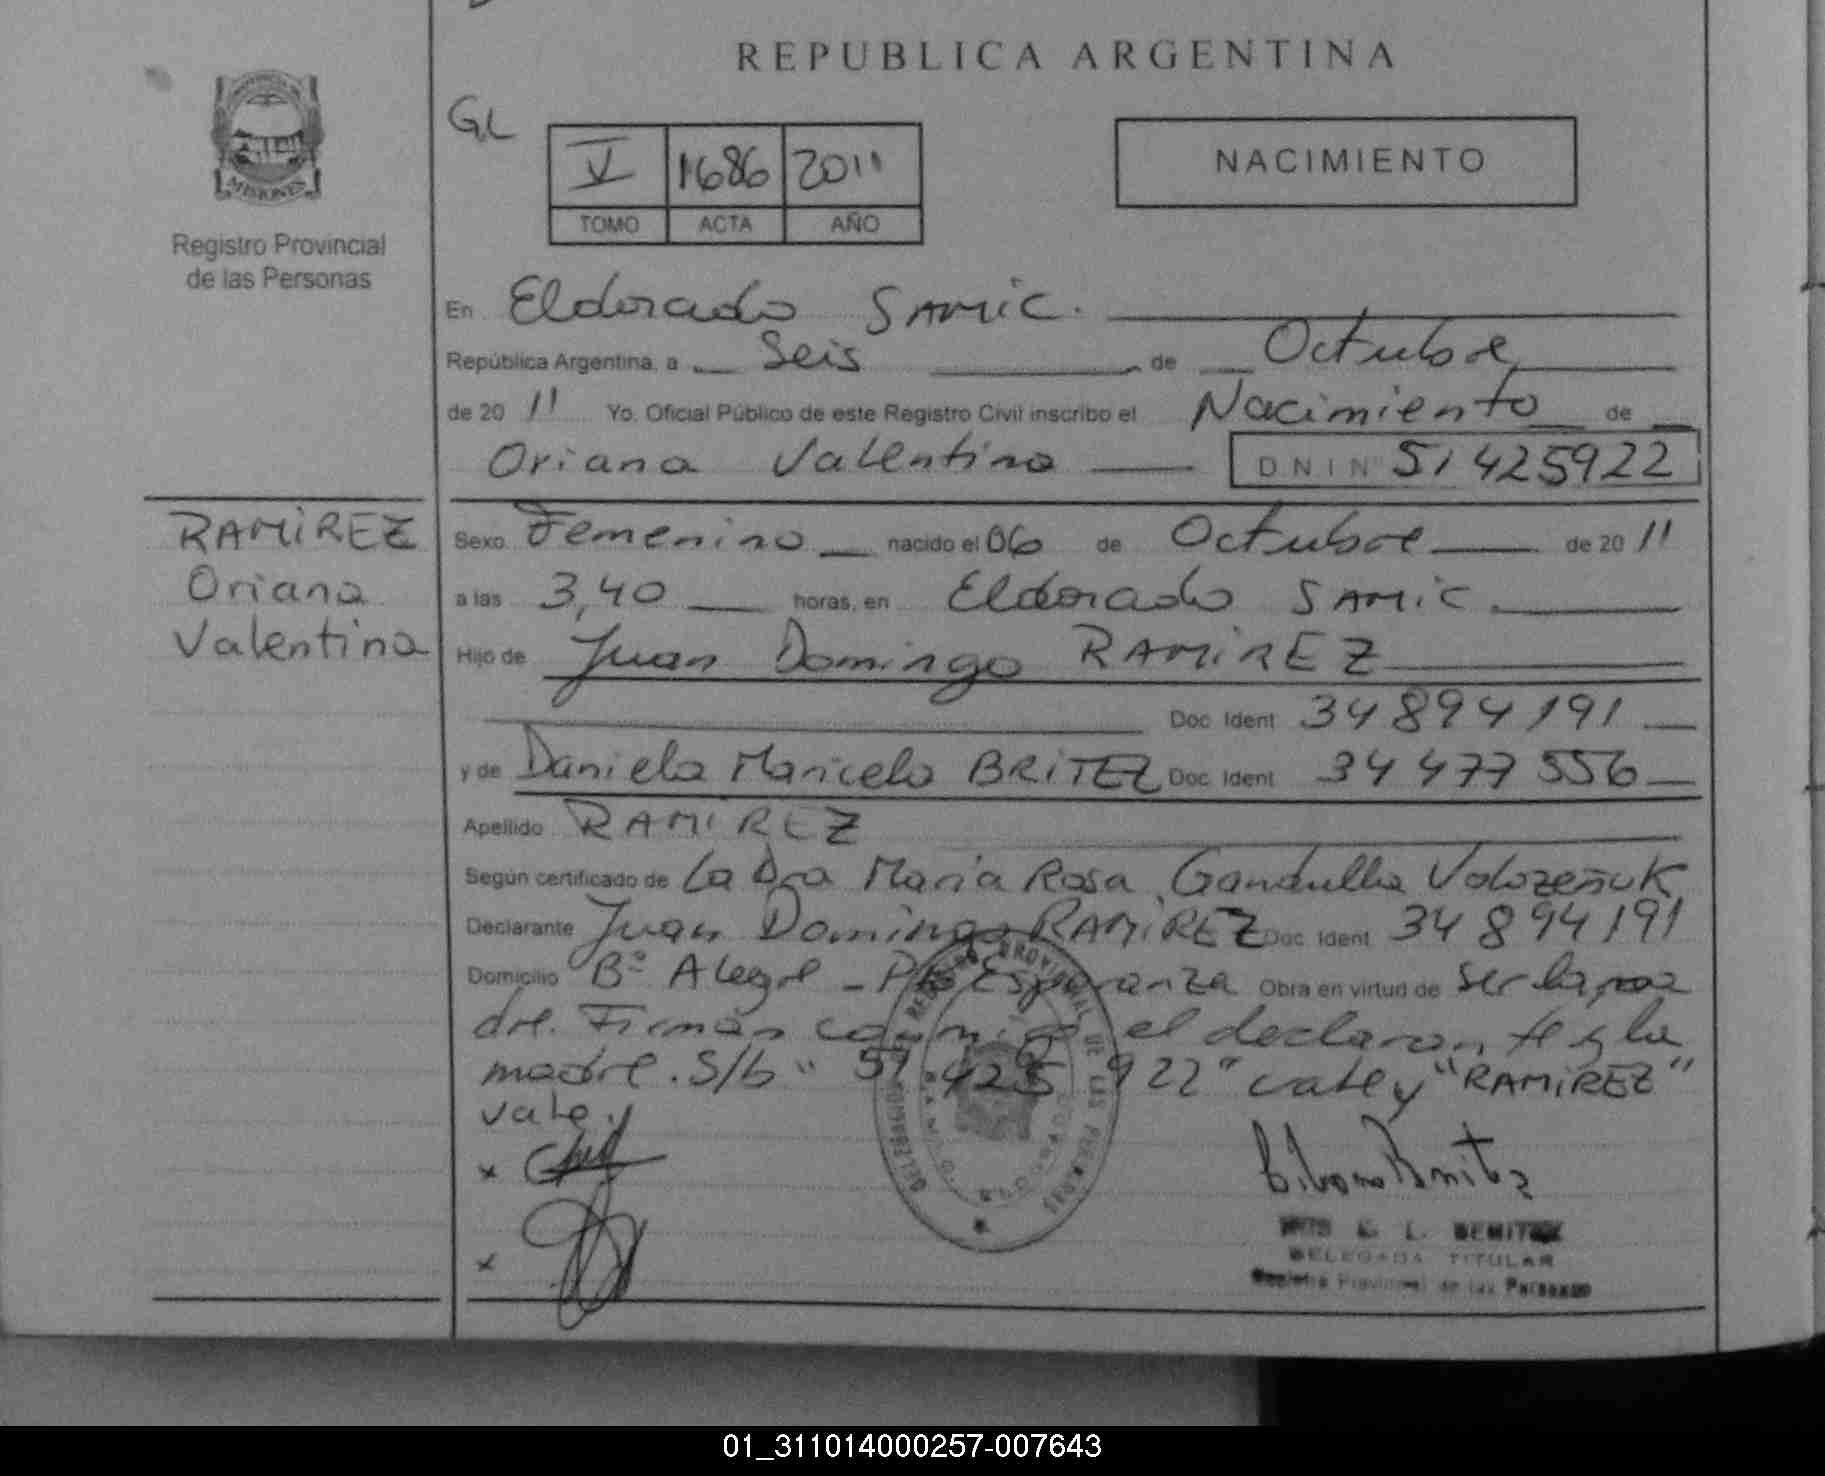 REPUBLICA ARGENTINA
GL
V 1686 2011
TOMO ACTA AÑO
NACIMIENTO
MISIONES
Registro Provincial
de las Personas
En Eldorado SAMIC.
República Argentina, a Seis de Octubre
de 20 11 Yo, Oficial Público de este Registro Civil inscribo el Nacimiento de
Oriana Valentina DNI Nº 51425922
RAMIREZ
Oriana
Valentina
Sexo Femenino nacido el 06 de Octubre de 20 11
a las 3,40 horas, en Eldorado SAMIC.
Hijo de Juan Domingo RAMIREZ
Doc. Ident. 34894191
y de Daniela Maricela BRITEZ Doc. Ident. 34477556
Apellido RAMIREZ
Según certificado de La Dra Maria Rosa Gandulla Volozeñuk
Declarante Juan Domingo RAMIREZ Doc. Ident. 34894191
Domicilio Bº Alegre - Pto Esperanza Obra en virtud de ser la
dre. Firman conmigo el declarante y la
madre. S/b " 51 425 922" vale y "RAMIREZ"
vale.
REGISTRO PROVINCIAL DE LAS PERSONAS
x
x
BENITEZ
DELEGADA TITULAR
Registro Provincial de las Personas
01_311014000257-007643